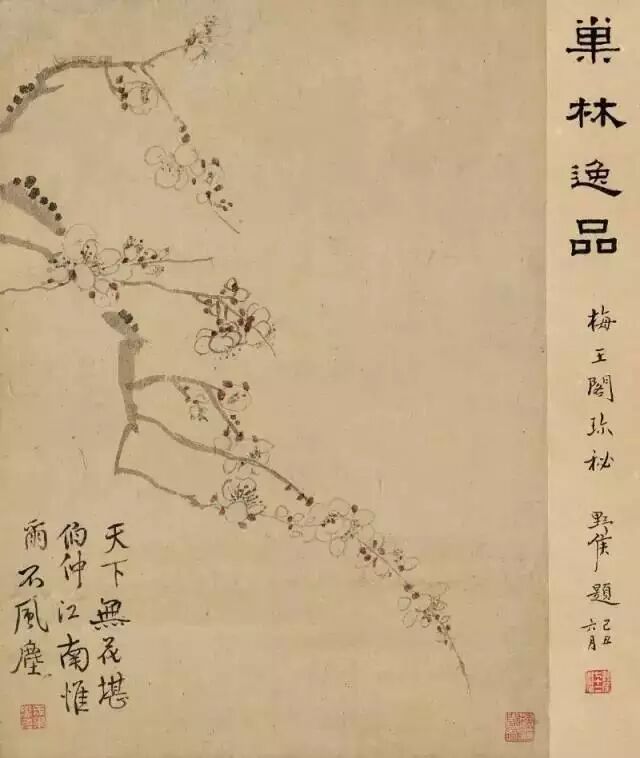 巢林逸品
梅王閣珎秘
野侯題
己丑
六月
天下無花堪
伯仲江南惟
爾不風塵